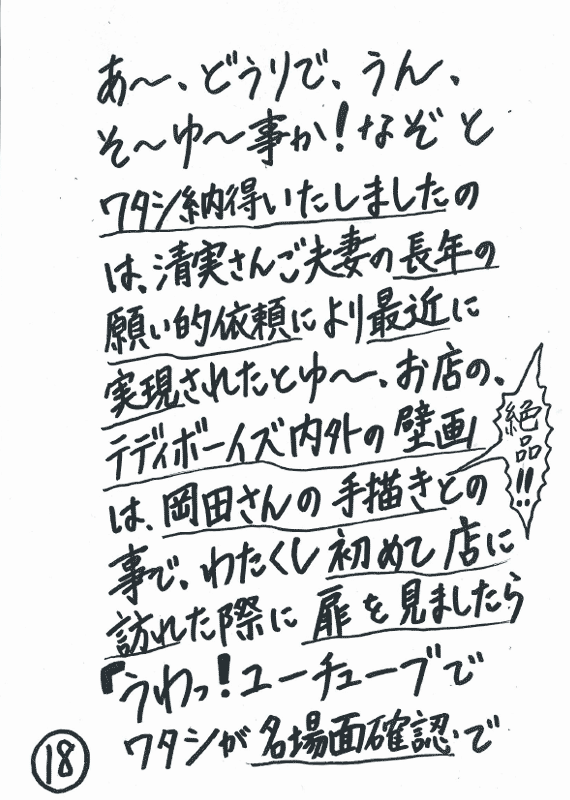 あ〜、どうりで、うん、
そ〜ゆ〜事か！なぞと
ワタシ納得いたしましたの
は、清実さんご夫妻の長年の
願い的依頼により最近に
実現されたとゆ〜、お店の、
テディボーイズ内外の壁画
絶品!!
は、岡田さんの手描きとの
事で、わたくし初めて店に
訪れた際に扉を見ましたら
「うわっ！ユーチューブで
ワタシが名場面確認で
18